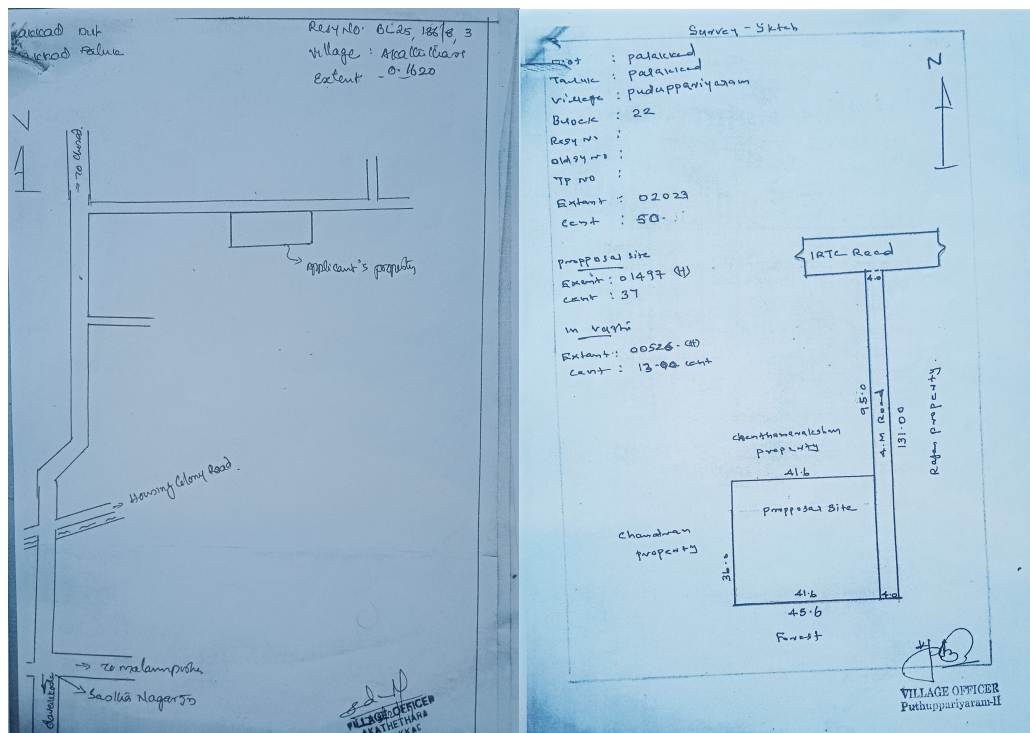 Resy No: BL 25, 186/8, 3
Village :
Extent - 0.1620
→ To
Applicant's property
→ Housing Colony Road.
→ To malampuzha
Nagar Jn
VILLAGE OFFICER
AKATHETHARA
Survey - Sktch
Dist : palakkad
Taluk : palakkad
Village : puduppariyaram
Block : 22
Resy No :
Old sy no :
TP NO :
Extant : 02023
Cent : 50.
propposal site
Extent : 01497 (H)
Cent : 37
Extant : 00526. (H)
Cent : cent
IRTC Road
4.0
95.0
4.M Road
131.00
Rajan property.
property
41.6
propposal site
Chandran
property
36.0
41.6
4.0
45.6
Forest
VILLAGE OFFICER
Puthuppariyaram-II